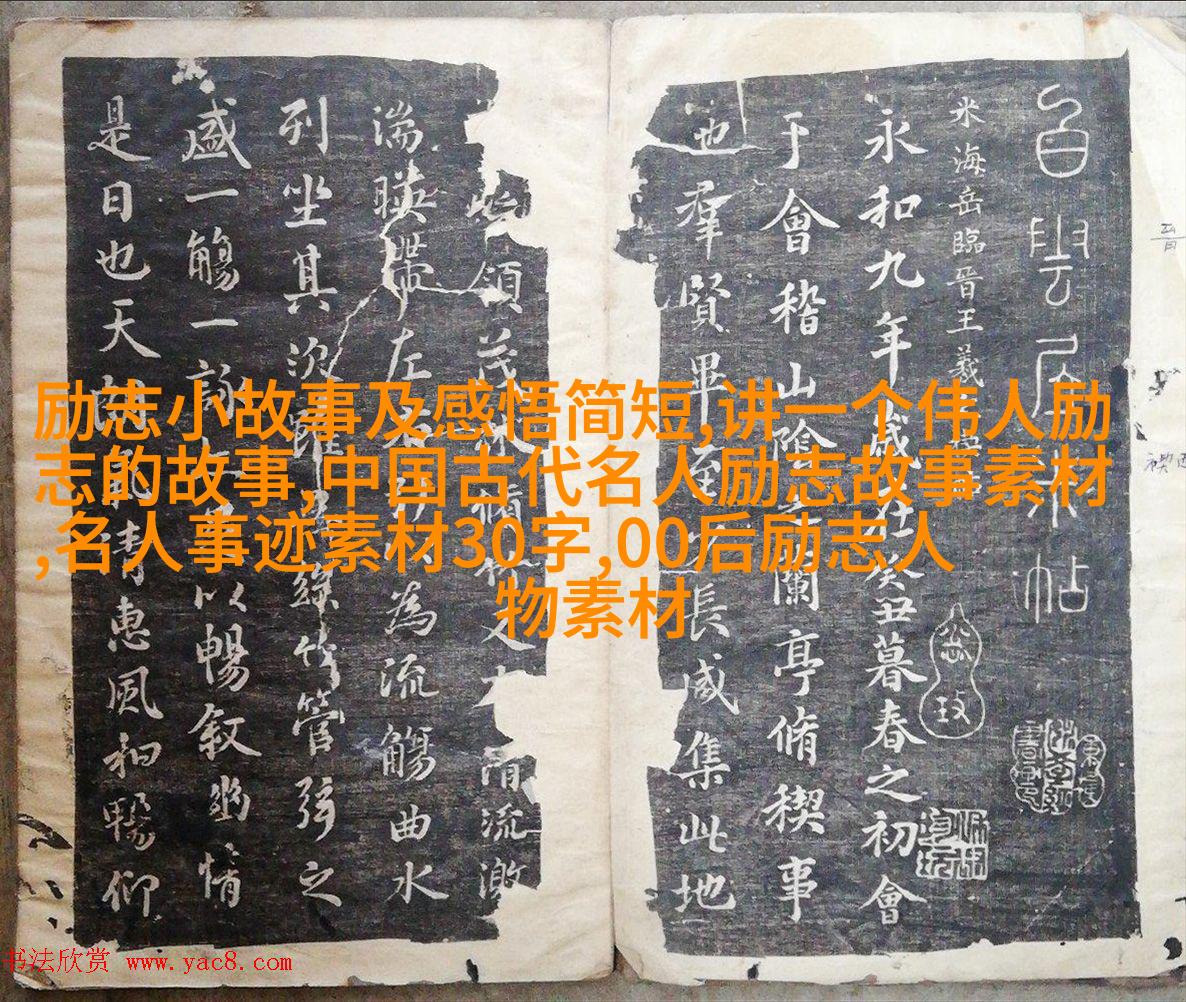 励志小故事及感悟简短,讲一个伟人励
志的故事,中国古代名人励志故事素材
,名人事迹素材30字,00后励志人
物素材
白雲居米帖
米海岳臨晉王羲
永和九年歲在癸丑暮春之初會
于會稽山陰之蘭亭脩稧事
也羣賢畢至少長咸集此地
領茂林脩竹又有清流激
湍暎帶左右引以為流觴曲水
列坐其次雖無絲竹管弦之
盛一觴一詠亦足以暢叙幽情
是日也天朗氣清惠風和暢仰
书法欣赏 www.yac8.com